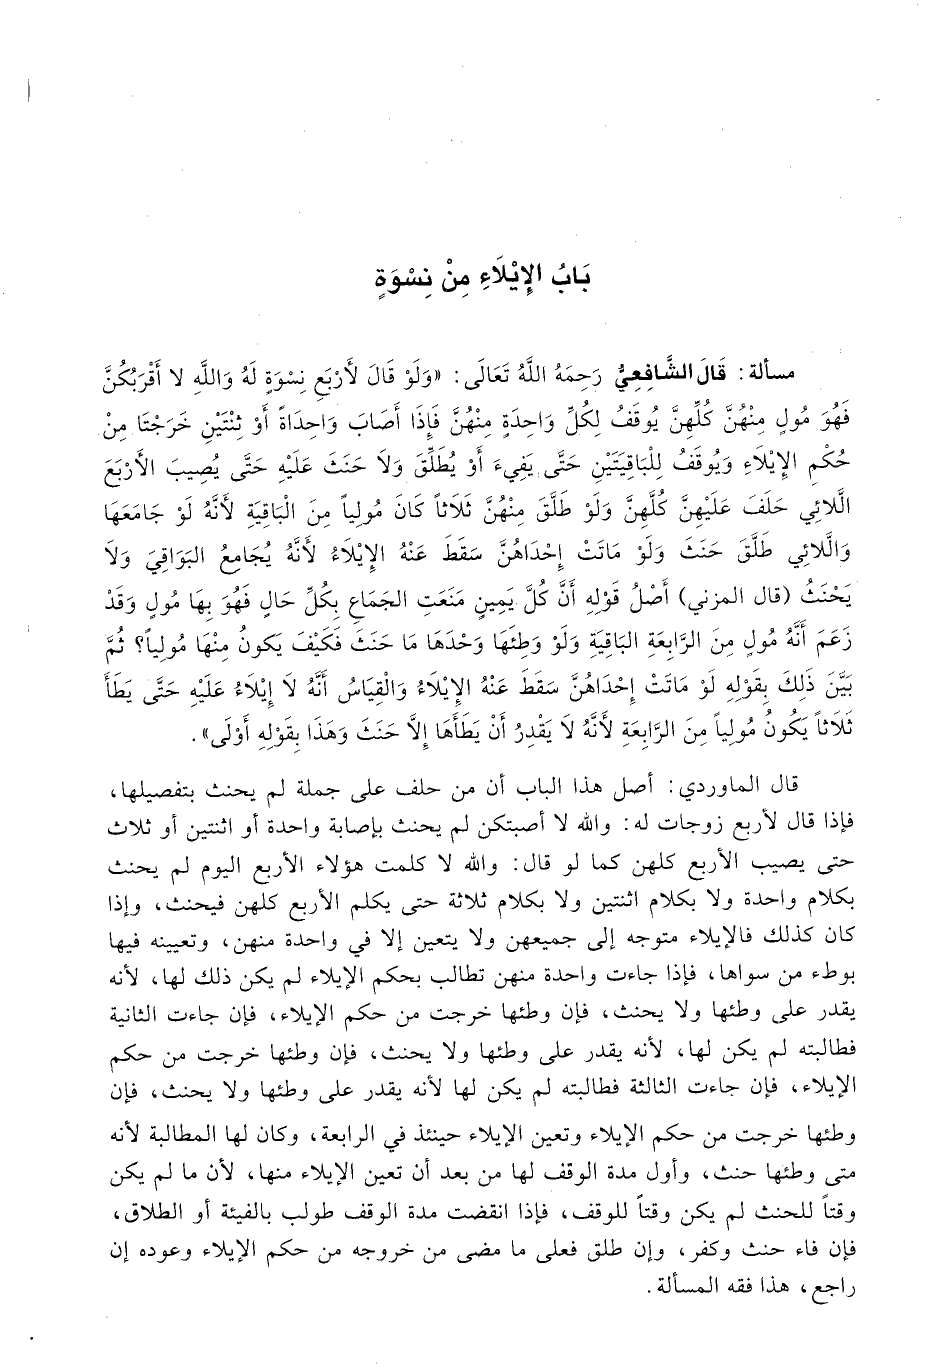 بَابُ الإِيْلَاءِ مِنْ نِسْوَةٍ
مسألة: قَالَ الشَّافِعِيُّ رَحِمَهُ اللَّهُ تَعَالَى: «وَلَوْ قَالَ لأَرْبَعِ نِسْوَةٍ لَهُ وَاللَّهِ لا أَقْرَبُكُنَّ
فَهُوَ مُولٍ مِنْهُنَّ كُلِّهِنَّ يُوقَفُ لِكُلِّ وَاحِدَةٍ مِنْهُنَّ فَإِذَا أَصَابَ وَاحِدَاةً أَوْ ثِنْتَيْنِ خَرَجْتَا مِنْ
حُكْمِ الإِيْلَاءِ وَيُوقَفُ لِلْبَاقِيَتَيْنِ حَتَّى يَفِيءَ أَوْ يُطَلِّقَ وَلَا حَنَثَ عَلَيْهِ حَتَّى يُصِيبَ الأَرْبَعَ
الَّلائِي حَلَفَ عَلَيْهِنَّ كُلَّهِنَّ وَلَوْ طَلَّقَ مِنْهُنَّ ثَلَاثاً كَانَ مُولِياً مِنَ الْبَاقِيَةِ لأَنَّهُ لَوْ جَامَعَهَا
وَالَّلائِي طَلَّقَ حَنَثَ وَلَوْ مَاتَتْ إِحْدَاهُنَّ سَقَطَ عَنْهُ الإِيْلَاءُ لأَنَّهُ يُجَامِعُ البَوَاقِيَ وَلَا
يَحْنَثُ (قال المزني) أَصْلُ قَوْلِهِ أَنَّ كُلَّ يَمِينٍ مَنَعَتِ الجِمَاعَ بِكُلِّ حَالٍ فَهُوَ بِهَا مُولٍ وَقَدْ
زَعَمَ أَنَّهُ مُولٍ مِنَ الرَّابِعَةِ البَاقِيَةِ وَلَوْ وَطِئَهَا وَحْدَهَا مَا حَنَثَ فَكَيْفَ يَكونُ مِنْهَا مُولِياً؟ ثُمَّ
بَيَّنَ ذَلِكَ بِقَوْلِهِ لَوْ مَاتَتْ إِحْدَاهُنَّ سَقَطَ عَنْهُ الإِيْلَاءُ وَالْقِيَاسُ أَنَّهُ لَا إِيْلَاءُ عَلَيْهِ حَتَّى يَطَأَ
ثَلَاثاً يَكُونُ مُولِياً مِنَ الرَّابِعَةِ لأَنَّهُ لَا يَقْدِرُ أَنْ يَطَأَهَا إِلاَّ حَنَثَ وَهَذَا بِقَوْلِهِ أَوْلَى».
قال الماوردي: أصل هذا الباب أن من حلف على جملة لم يحنث بتفصيلها،
فإذا قال لأربع زوجات له: والله لا أصبتكن لم يحنث بإصابة واحدة أو اثنتين أو ثلاث
حتى يصيب الأربع كلهن كما لو قال: والله لا كلمت هؤلاء الأربع اليوم لم يحنث
بكلام واحدة ولا بكلام اثنتين ولا بكلام ثلاثة حتى يكلم الأربع كلهن فيحنث، وإذا
كان كذلك فالإيلاء متوجه إلى جميعهن ولا يتعين إلا في واحدة منهن، وتعيينه فيها
بوطء من سواها، فإذا جاءت واحدة منهن تطالب بحكم الإيلاء لم يكن ذلك لها، لأنه
يقدر على وطئها ولا يحنث، فإن وطئها خرجت من حكم الإيلاء، فإن جاءت الثانية
فطالبته لم يكن لها، لأنه يقدر على وطئها ولا يحنث، فإن وطئها خرجت من حكم
الإيلاء، فإن جاءت الثالثة فطالبته لم يكن لها لأنه يقدر على وطئها ولا يحنث، فإن
وطئها خرجت من حكم الإيلاء وتعين الإيلاء حينئذ في الرابعة، وكان لها المطالبة لأنه
متى وطئها حنث، وأول مدة الوقف لها من بعد أن تعين الإيلاء منها، لأن ما لم يكن
وقتاً للحنث لم يكن وقتاً للوقف، فإذا انقضت مدة الوقف طولب بالفيئة أو الطلاق،
فإن فاء حنث وكفر، وإن طلق فعلى ما مضى من خروجه من حكم الإيلاء وعوده إن
راجع، هذا فقه المسألة.